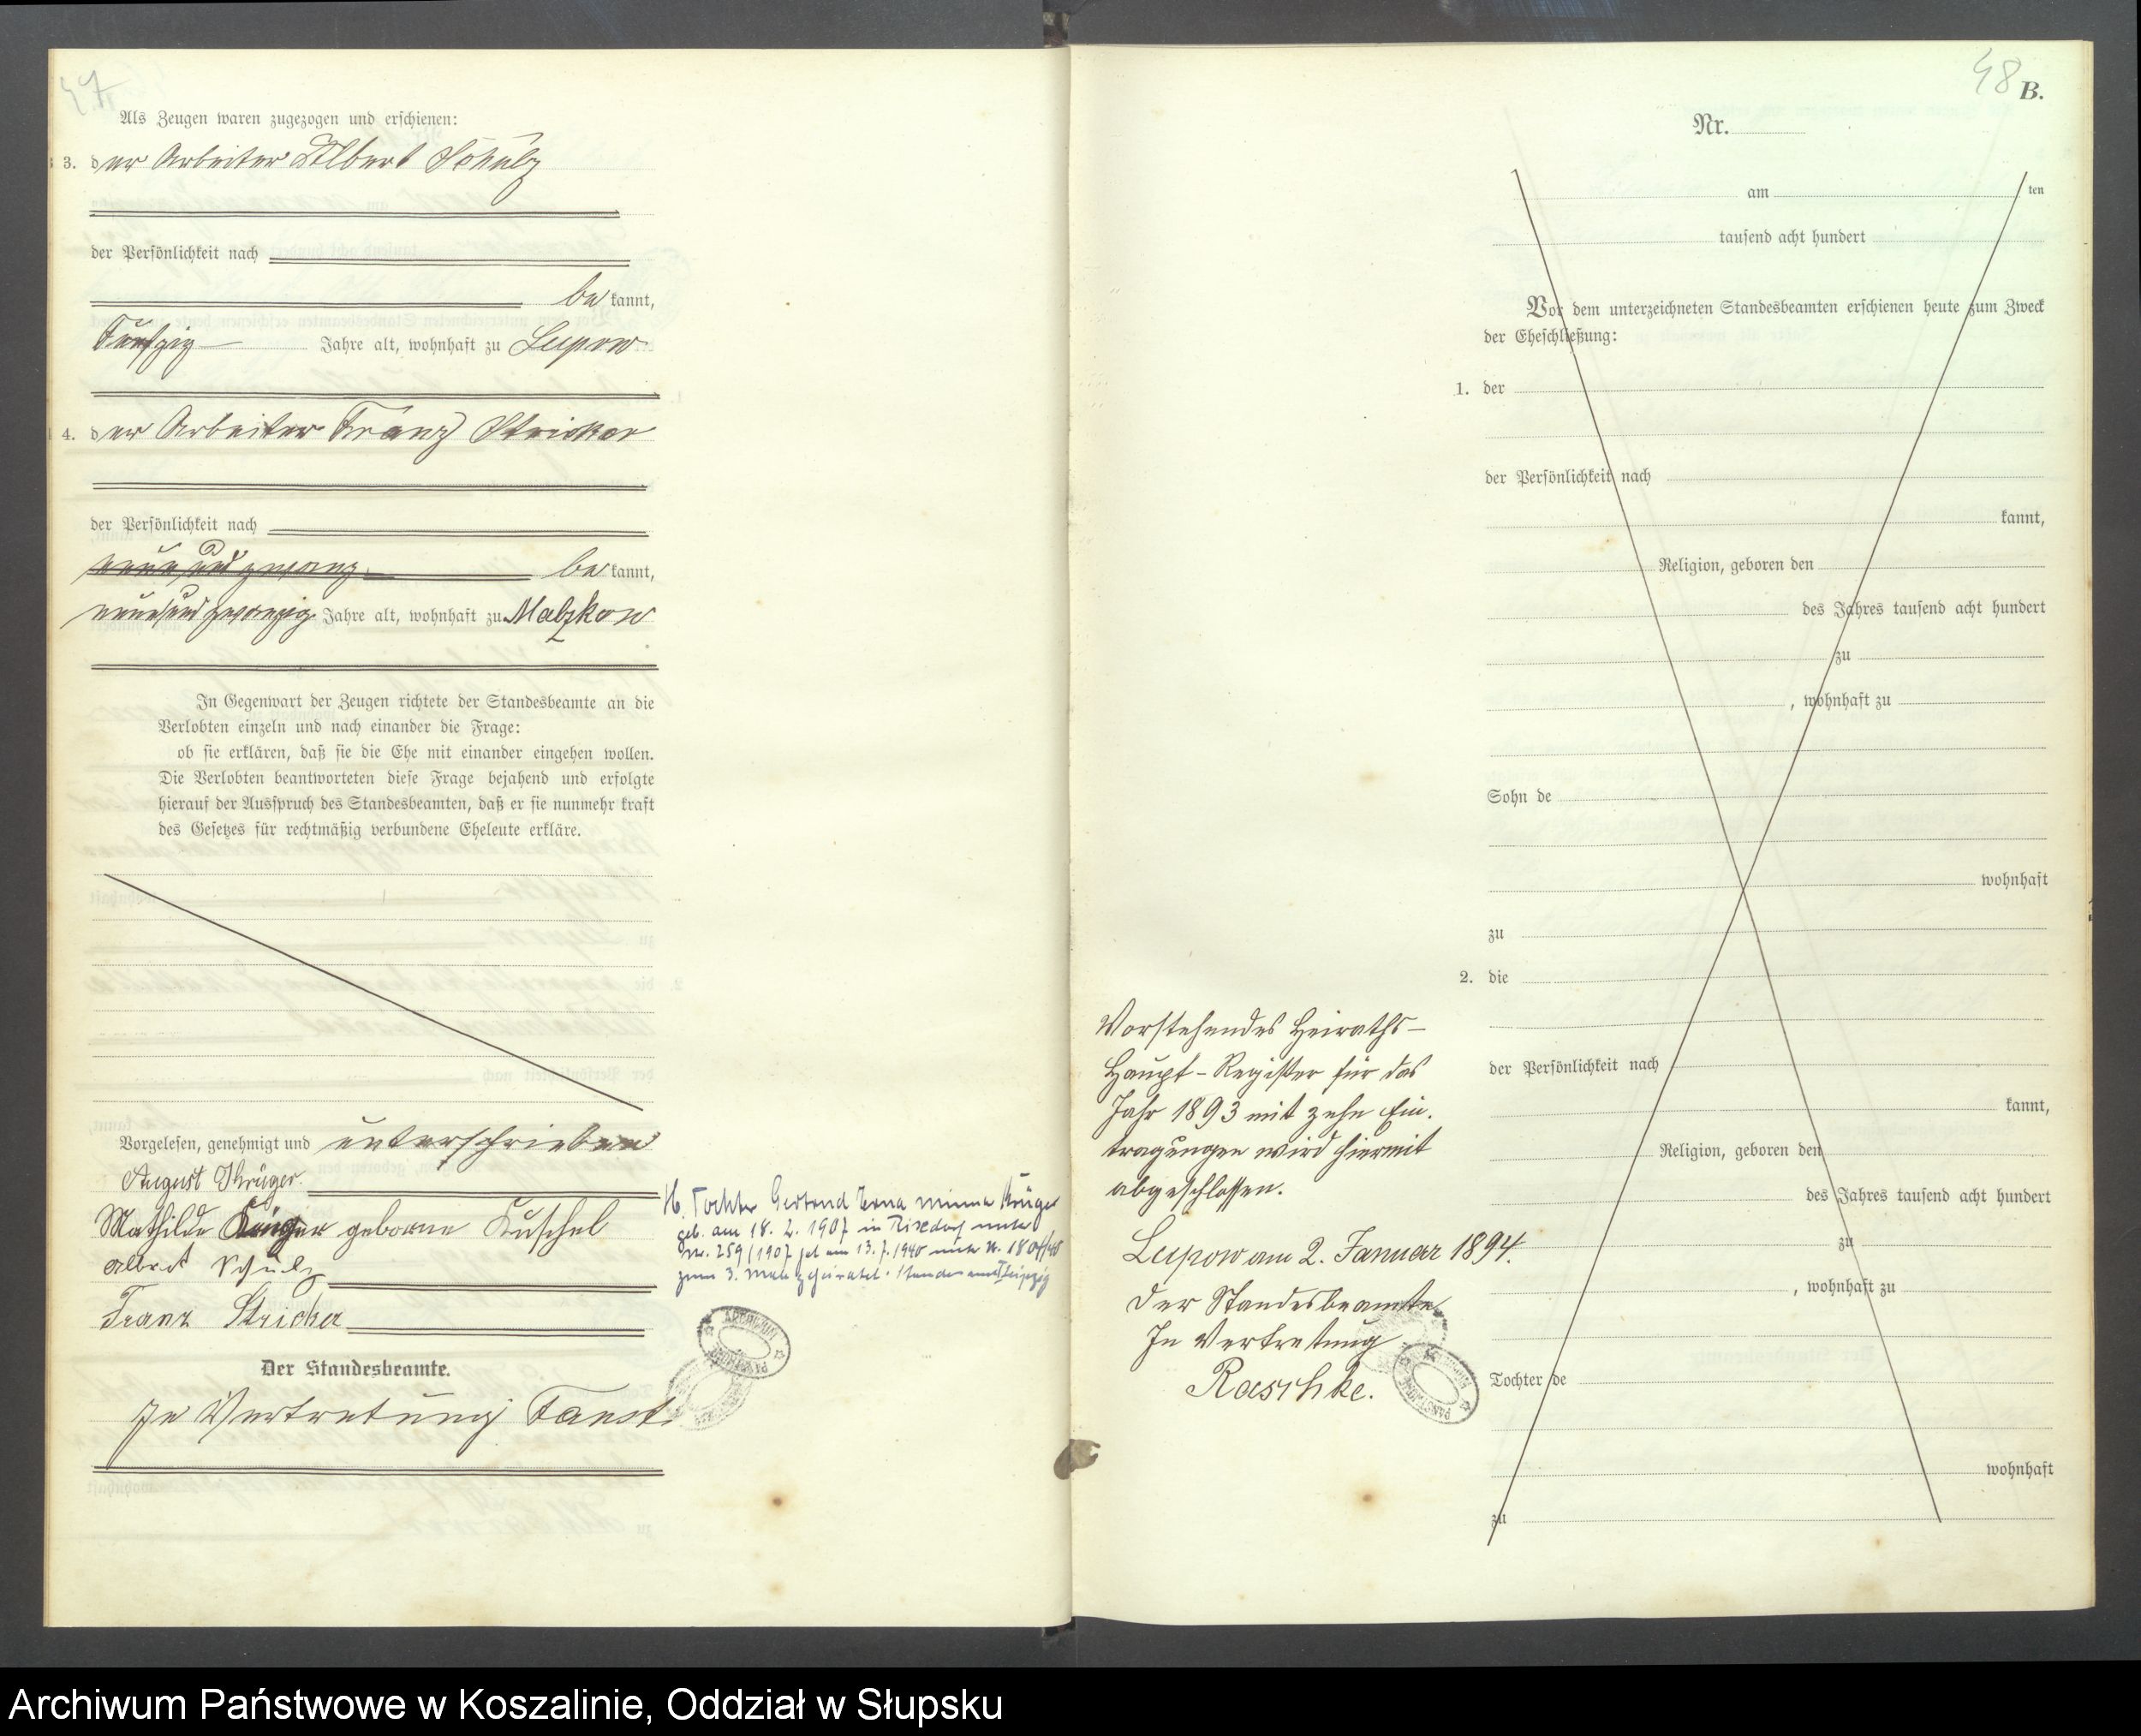 47
Als Zeugen waren zugezogen und erschienen:
3. der Arbeiter Albert Schulz
der Persönlichkeit nach
bekannt,
Fünfzig Jahre alt, wohnhaft zu Lupow
4. der Arbeiter Franz Stricker
der Persönlichkeit nach
neun und zwanz bekannt,
neunundzwanzig Jahre alt, wohnhaft zu Malzkow
In Gegenwart der Zeugen richtete der Standesbeamte an die
Verlobten einzeln und nach einander die Frage:
ob sie erklären, daß sie die Ehe mit einander eingehen wollen.
Die Verlobten beantworteten diese Frage bejahend und erfolgte
hierauf der Ausspruch des Standesbeamten, daß er sie nunmehr kraft
des Gesetzes für rechtmäßig verbundene Eheleute erkläre.
Vorgelesen, genehmigt und unterschrieben
August Krüger.
Mathilde Krüger geborne Kuschel
Albert Schulz
Franz Stricker
Der Standesbeamte.
In Vertretung Faust.
H. Tochter Gertrud Erna Minna Krüger
geb. am 18. 2. 1907 in Rixdorf unter
Nr. 259/1907 hat am 13. 7. 1940 unter N. 1804/40
zum 3. Male geheiratet. Standesamt I Leipzig
48 B.
Nr.
am ten
tausend acht hundert
Vor dem unterzeichneten Standesbeamten erschienen heute zum Zweck
der Eheschließung:
1. der
der Persönlichkeit nach
kannt,
Religion, geboren den
des Jahres tausend acht hundert
zu
, wohnhaft zu
Sohn de
wohnhaft
zu
2. die
der Persönlichkeit nach
kannt,
Religion, geboren den
des Jahres tausend acht hundert
zu
, wohnhaft zu
Tochter de
wohnhaft
zu
Vorstehendes Heiraths-
Haupt-Register für das
Jahr 1893 mit zehn Ein-
tragungen wird hiermit
abgeschlossen.
Lupow am 2. Januar 1894.
Der Standesbeamte
In Vertretung
Raschke.
Archiwum Państwowe w Koszalinie, Oddział w Słupsku